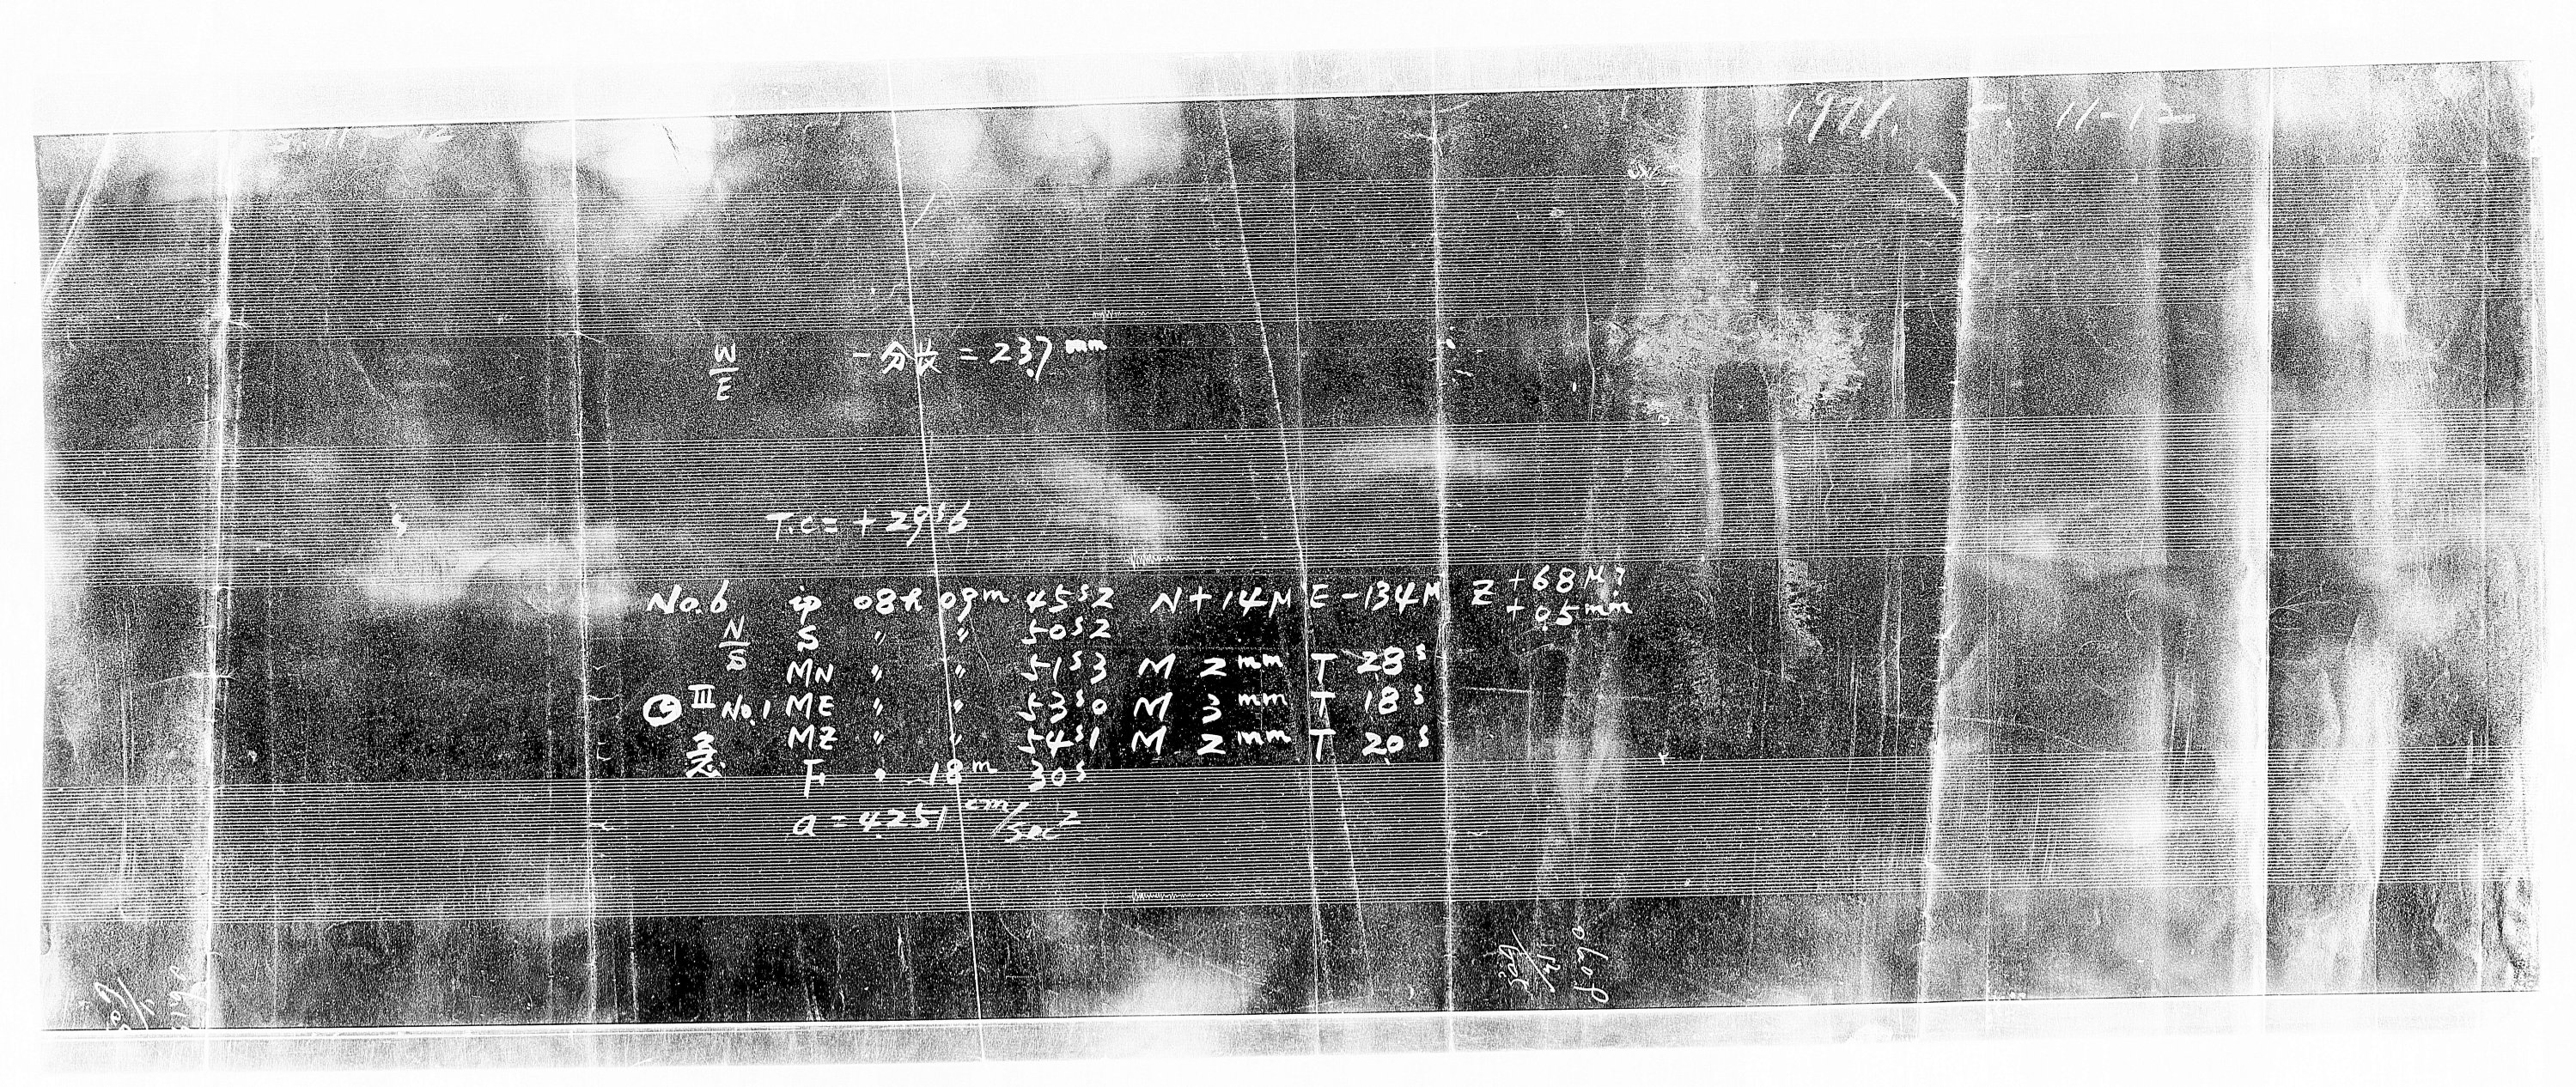 1971. 5. 11-12
W/E 一分長 = 23.7 mm
T.C = + 29s6
No.6 ip 08h 09m 45s2 N + 14μ E - 134μ Z + 68μ?
+ 0.5mm
N/S S 〃 〃 50s2
MN 〃 〃 51s3 M 2mm T 28s
III No.1 ME 〃 〃 53s0 M 3mm T 18s
MZ 〃 〃 54s1 M 2mm T 20s
急 F 〃 18m 30s
a = 4.251 cm/sec2